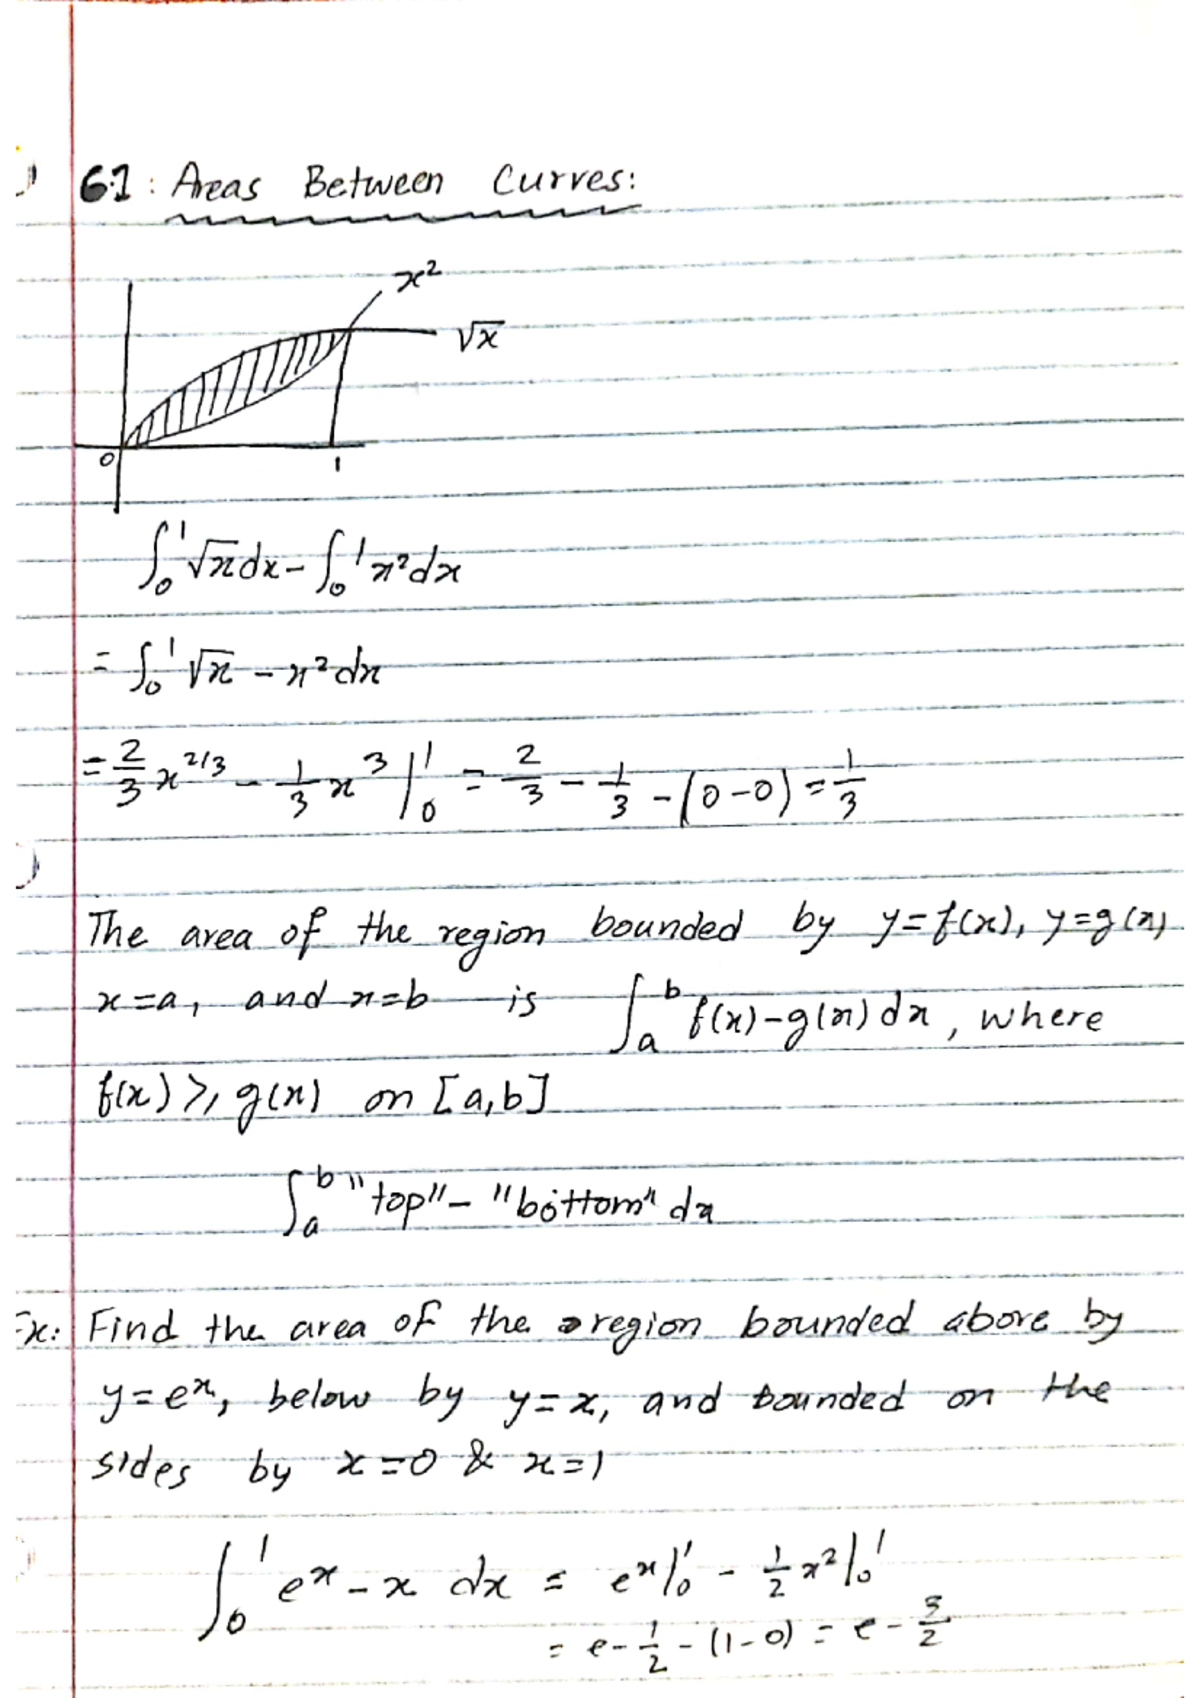 6.1: Areas Between Curves:
x²
√x
0 1
∫₀¹ √x dx - ∫₀¹ x² dx
= ∫₀¹ √x - x² dx
= 2/3 x^(2/3) - 1/3 x³ |₀¹ = 2/3 - 1/3 - (0-0) = 1/3
The area of the region bounded by y=f(x), y=g(x)
x=a, and x=b is ∫ₐᵇ f(x)-g(x) dx, where
f(x) ≥ g(x) on [a,b]
∫ₐᵇ "top" - "bottom" dx
Ex: Find the area of the region bounded above by
y=eˣ, below by y=x, and bounded on the
sides by x=0 & x=1
∫₀¹ eˣ - x dx = eˣ|₀¹ - 1/2 x²|₀¹
= e - 1/2 - (1-0) = e - 3/2